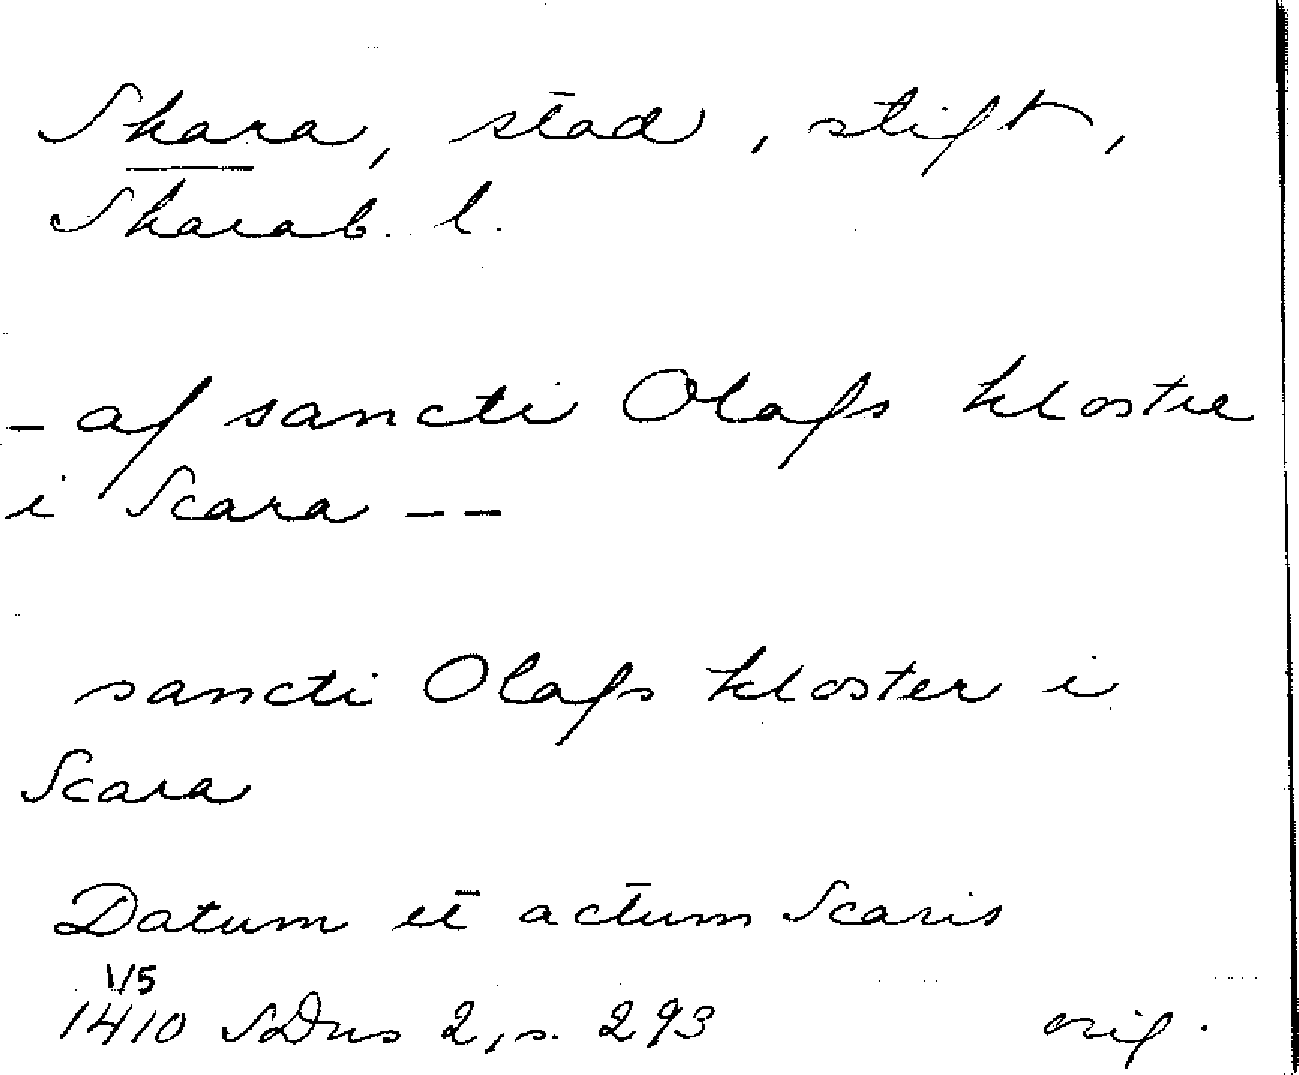 Skara, stad, stift,
Skarab. l.
- af sancti Olafs kloster
i Scara --
sancti Olafs kloster i
Scara
Datum et actum Scaris
1/5
1410 SDns 2, s. 293 orig.